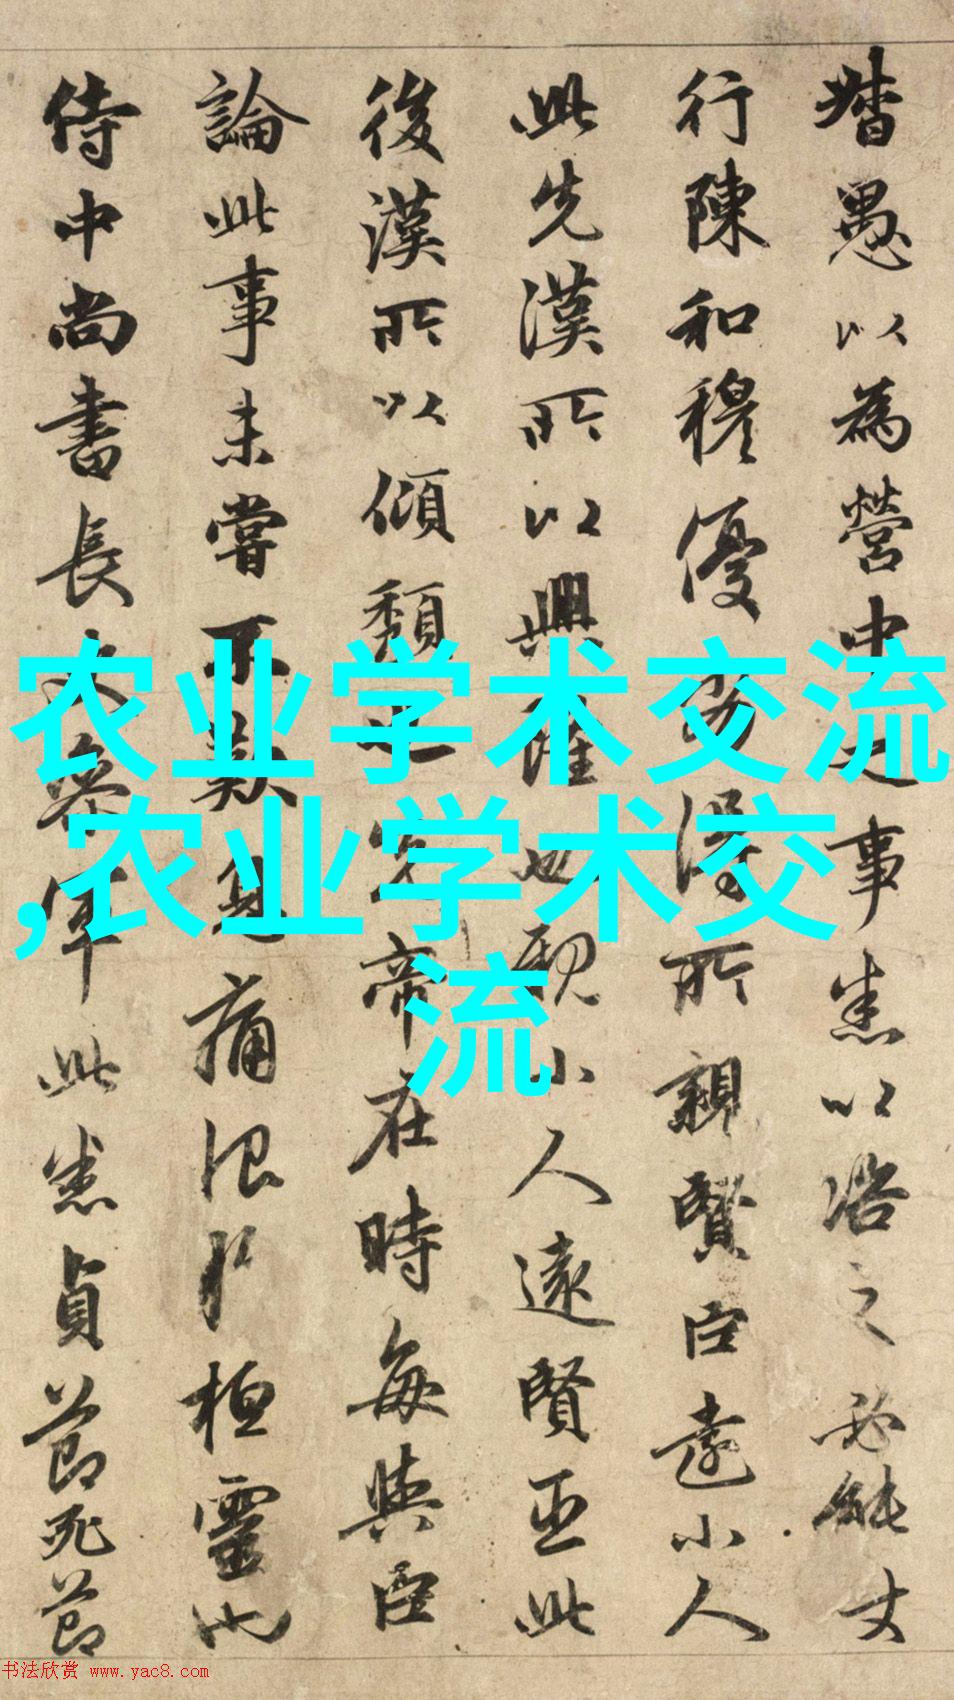 督愚以為營中之事悉以咨之必能使
行陳和穆優劣得所親賢臣遠小人
此先漢所以興隆也親小人遠賢臣此
後漢所以傾頹也先帝在時每與臣
論此事未嘗不歎息痛恨於桓靈也
侍中尚書長史參軍此悉貞節死節
农业学术交流
,农业学术交
流
书法欣赏 www.yac8.com